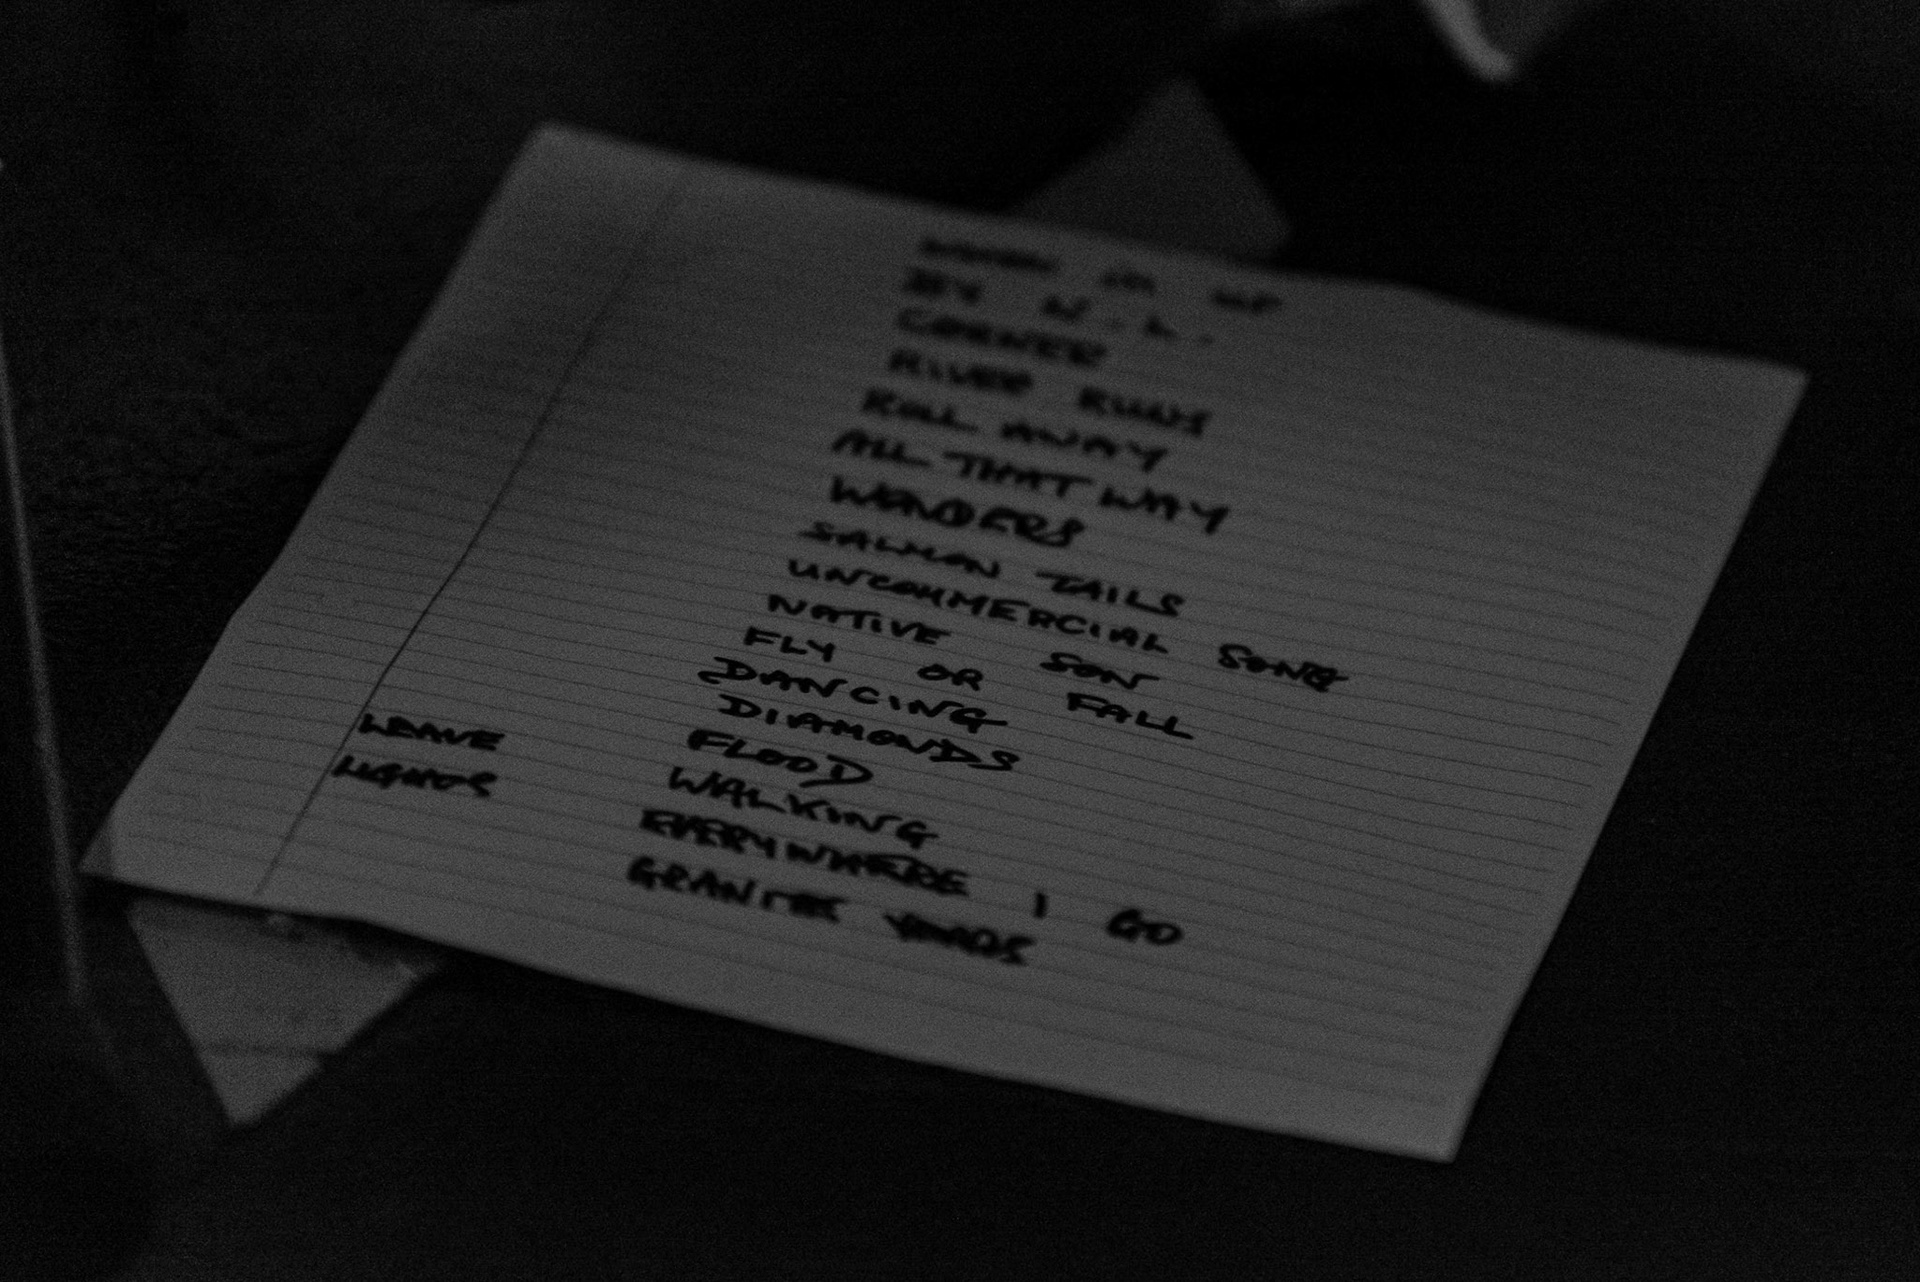 BY N.L.
CORNER
RIVER RUNS
ROLL AWAY
ALL THAT WAY
WONDERS
SALMON TAILS
UNCOMMERCIAL SONG
NATIVE SON
FLY OR FALL
DANCING
DIAMONDS
LEAVE FLOOD
LIGHTS WALKING
EVERYWHERE I GO
GRANITE YARDS